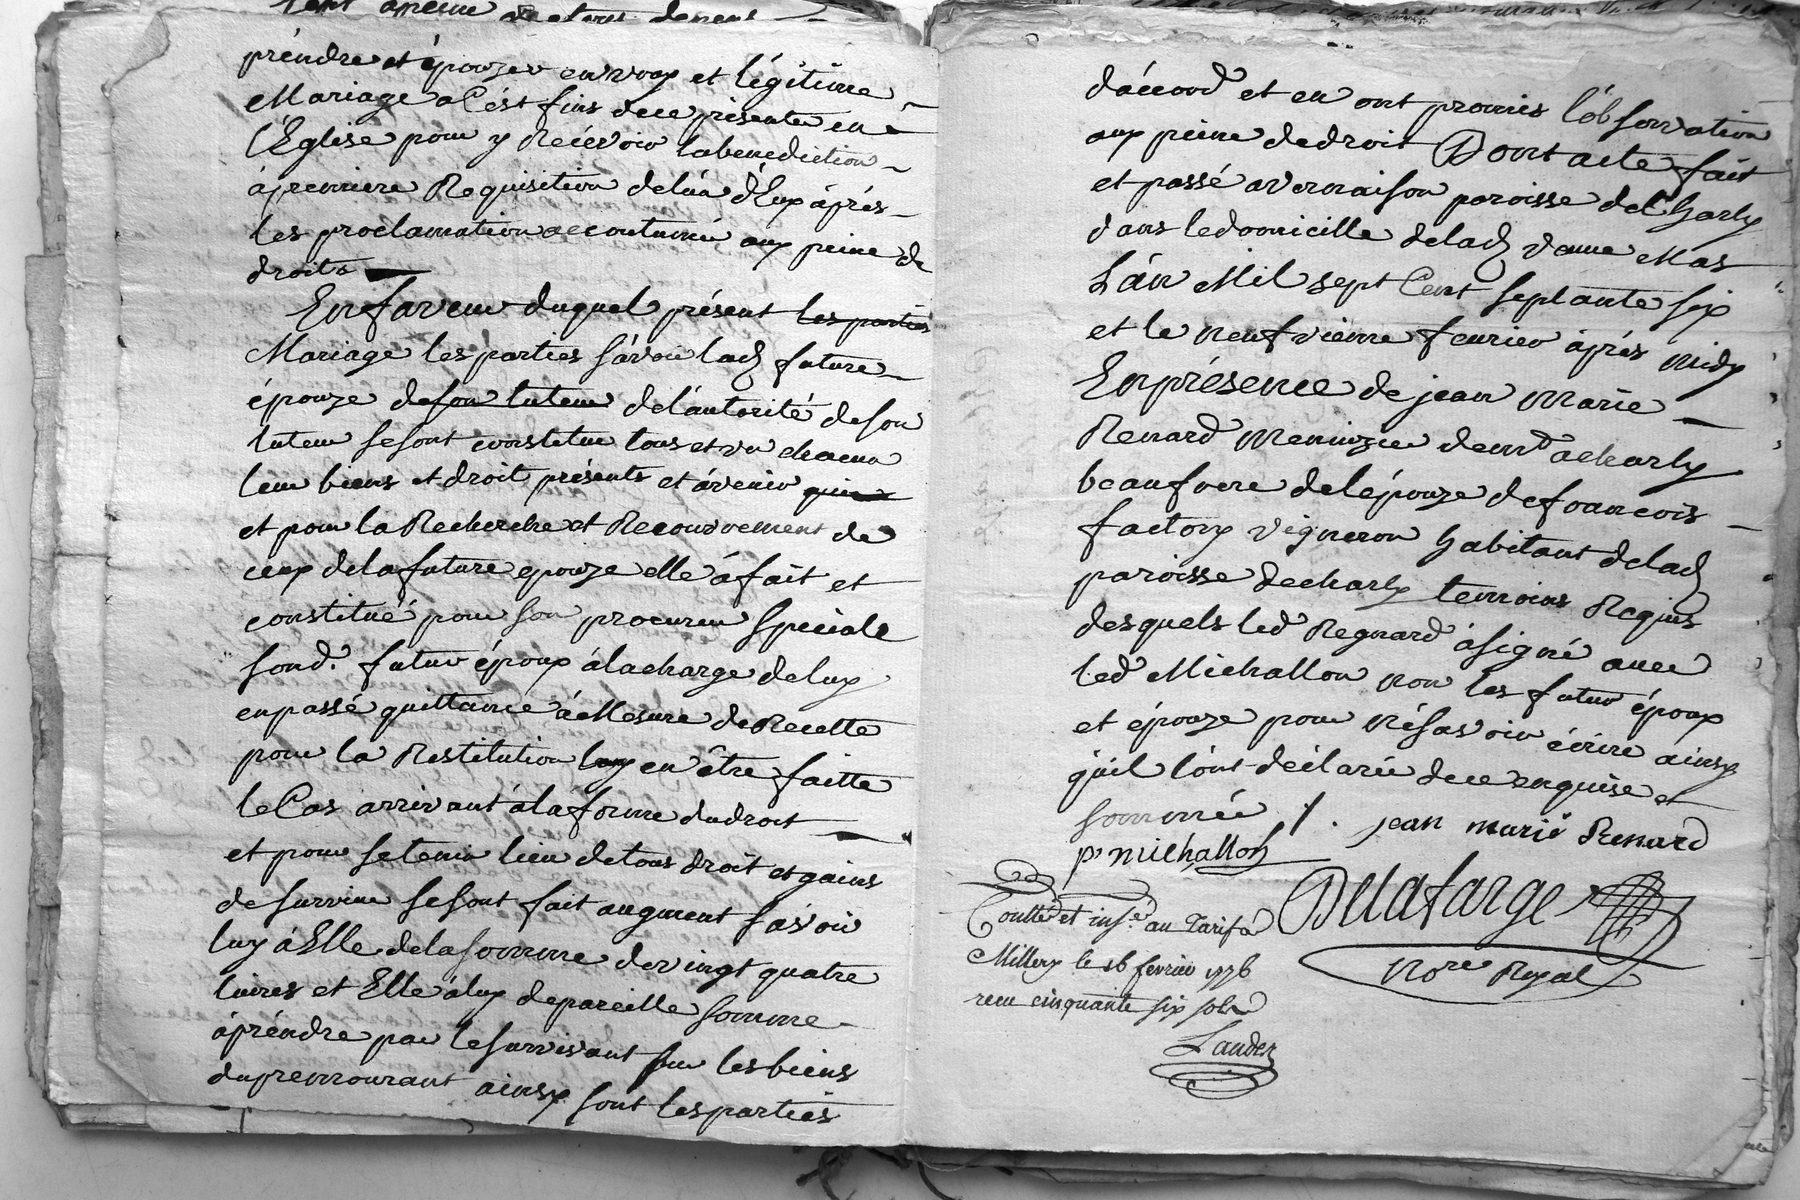 prendre et épouzer en vray et légitime
Mariage a Cést fins de ce présenter en
l'Église pour y Recévoir la benediction
à premiere Requisition de lun d'Eux àprés
les proclamation accoutumé aux peine de
droits
En faveur duquel présent les parties
Mariage les parties sávoir lad future
épouze de son tuteur de l'autorité de son
tuteur se sont constitue tous et un chacun
leur biens et droit présents et ávenir
et pour la Recherche et Recouvrement de
ceux de la future epouze elle á fait et
constitué pour son procureur speciale
sond. futur époux á la charge de luy
en passé quittance á Mesure de Recette
pour la Restitution luy en être faitte
le Cas arrivant á la forme du droit
et pour se tenir lieu de tous droit et gains
de survie se sont fait augment sávoir
luy á Elle de la somme de vingt quatre
livres et Elle á luy de pareille somme
á préndre par le survivant sur les biens
du premourant ainsy sont les parties
d'áccord et en ont promis l'observation
aux peine de droit Dont acte fait
et passé a vernaison paroisse de Charly
dans le domicille de lad veuve Mas
L'án Mil sept Cent septante six
et le neufvieme fevrier áprés midy
En présence de jean Marie
Renard Menuzier demt a charly
beaufrere de l'épouze de francois
factory vigneron habitant de lad
paroisse de charly temoins Requis
desquels led Regnard á signé avec
led Michallon non les futur époux
et épouze pour né savoir écrire ainsy
quil lont déclaré de ce enquise et
sommé /. jean marie Renard
pr michallon
Delafarge
Nore Royal
Contlé et insé au Tarif à
Millery le 16 fevrier 1776
recu cinquante six sols